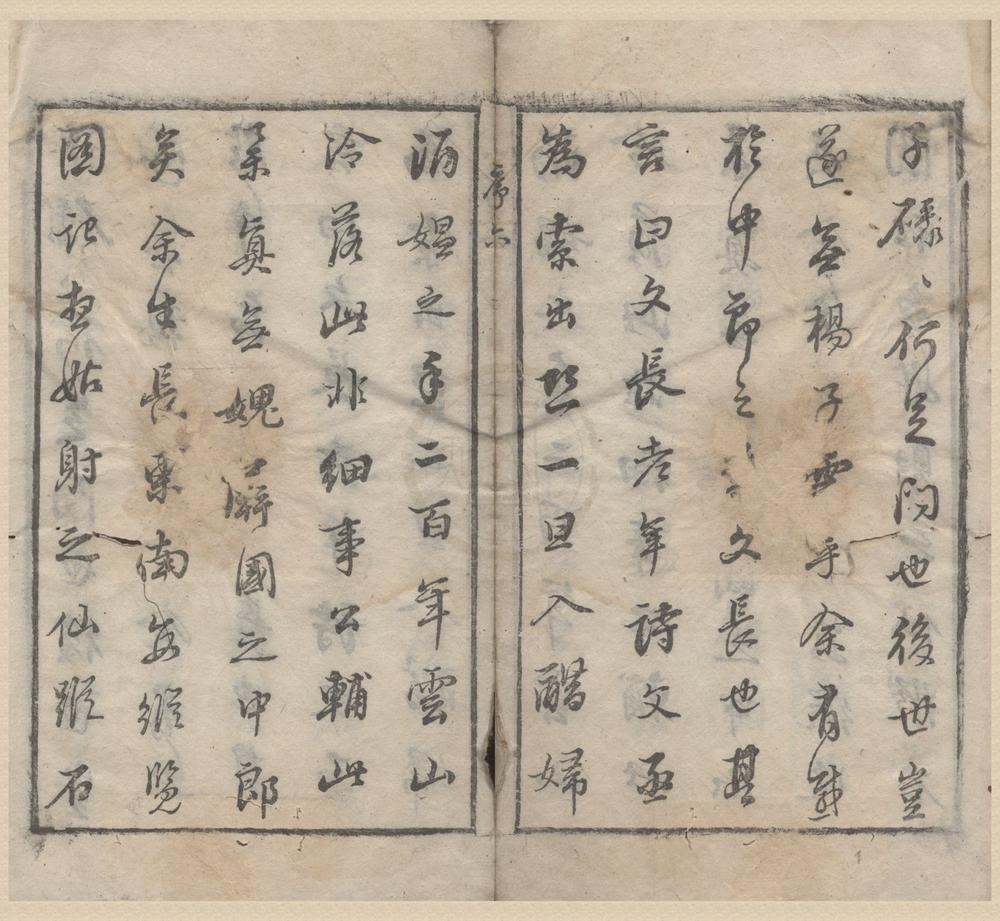 子碌〻何足問也後世豈
遂無楊子雲乎余有感
於中郎之文長也其
言曰文長老年詩文亟
為索出恐一旦入醋婦
序六
酒媼之手二百年雲山
冷落此非細事公輔此
舉真無媿國之中郎
矣余生長東南每縱覽
圖記想姑射之仙蹤石